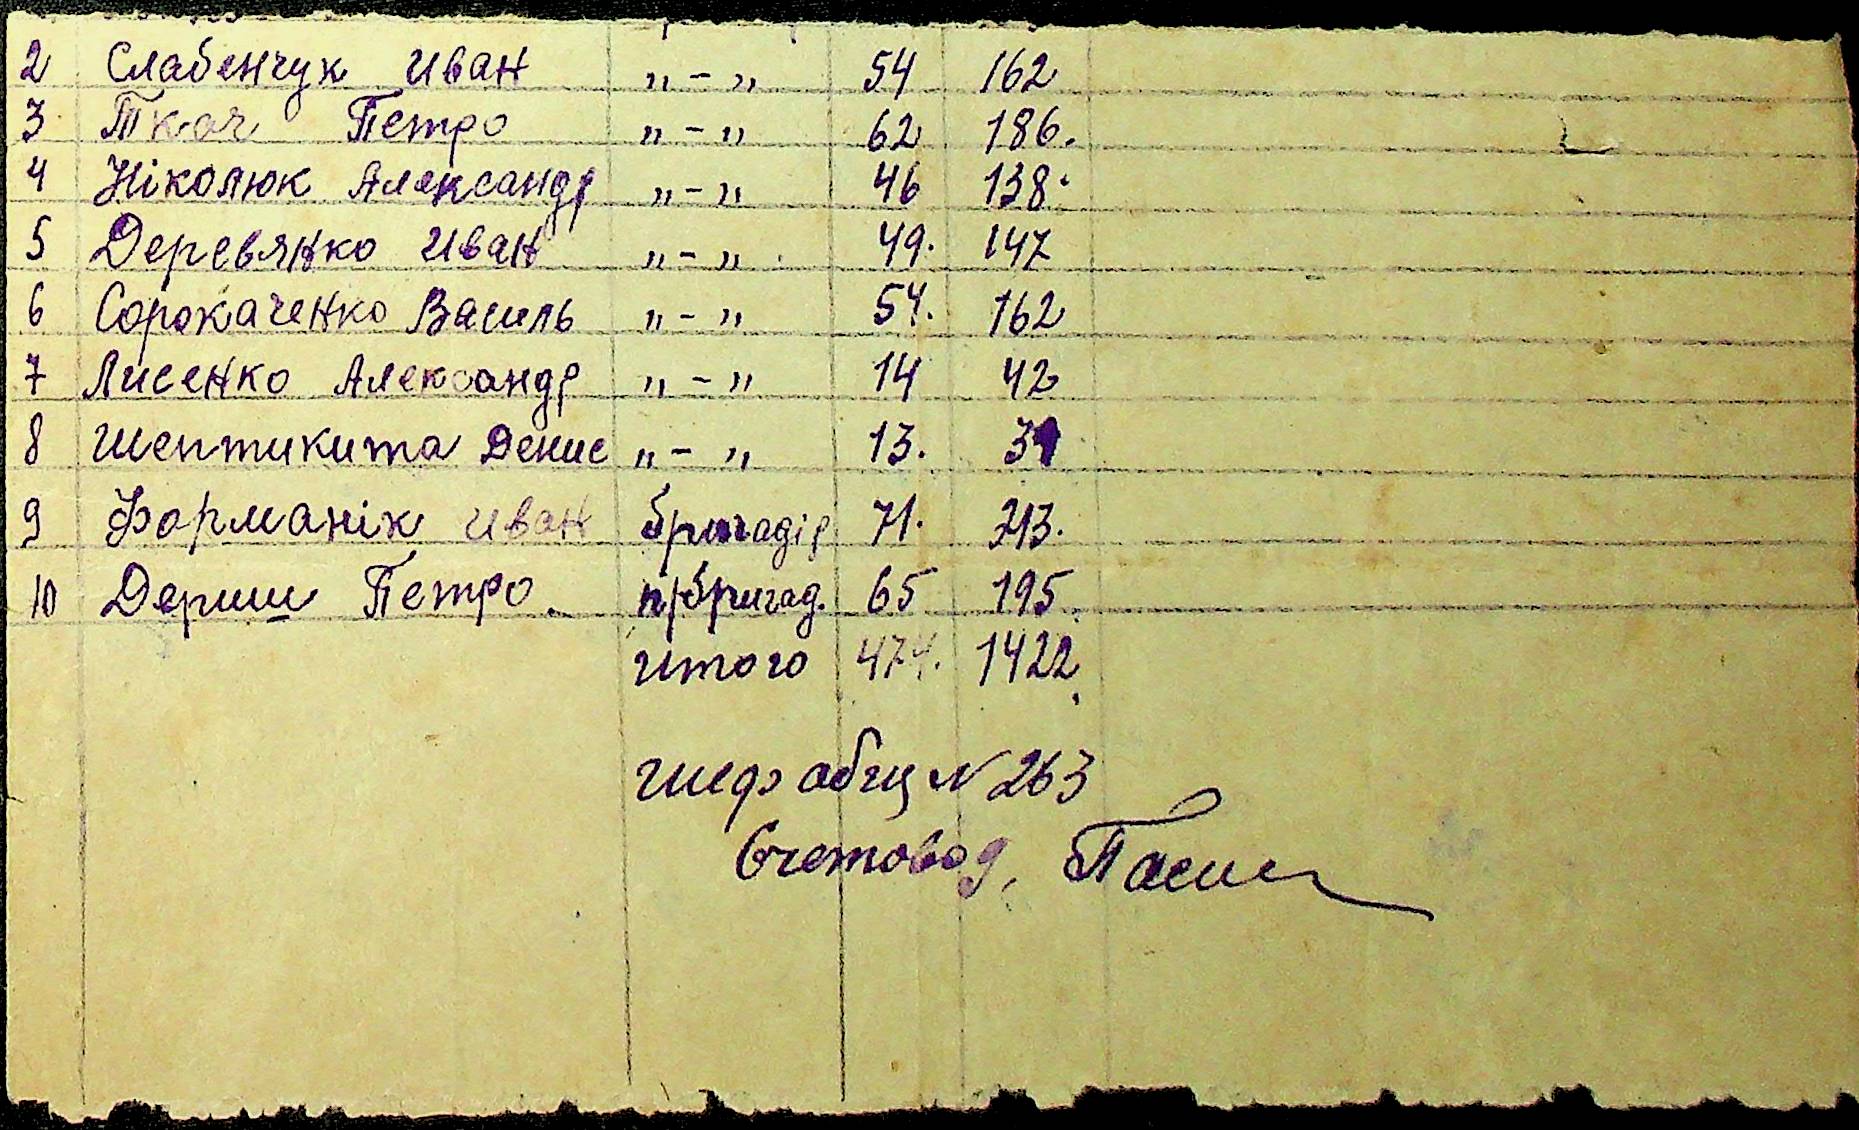 2 Слабенчук Иван „ - „ 54 162
3 Ткач Петро „ - „ 62 186.
4 Ніколюк Александр „ - „ 46 138.
5 Деревянко Иван „ - „ 49. 147
6 Сорокаченко Василь „ - „ 54. 162
7 Лисенко Александр „ - „ 14 42
8 Шептикита Денис „ - „ 13. 39
9 Форманік Иван бригадір 71. 213.
10 Дериш Петро. п/бригад. 65 195
итого 474. 1422
шеф общ N 263
Счетовод,